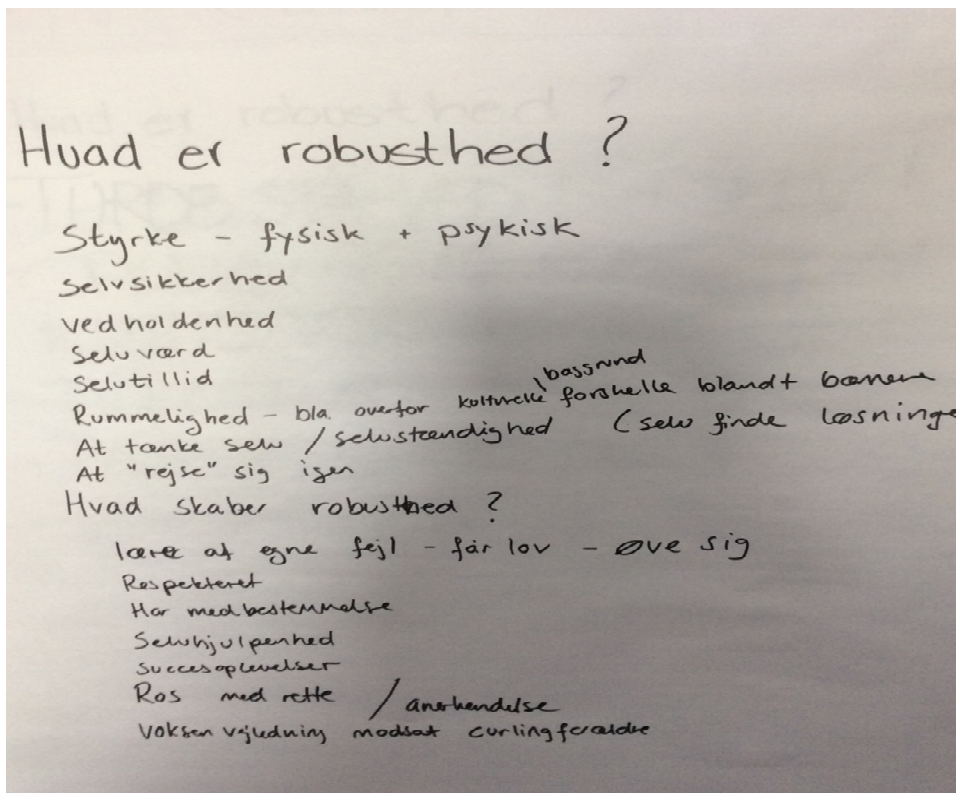 Hvad er robusthed ?
Styrke - fysisk + psykisk
Selvsikkerhed
vedholdenhed
Selvværd
Selvtillid
baggrund
Rummelighed - bla. overfor kulturelle forskelle blandt børnene
At tænke selv / selvstændighed (selv finde løsninge
At "rejse" sig igen
Hvad skaber robusthed ?
lære af egne fejl - får lov - øve sig
Respekteret
Har medbestemmelse
Selvhjulpenhed
Succesoplevelser
Ros med rette / anerkendelse
Voksen vejledning modsat curlingforældre